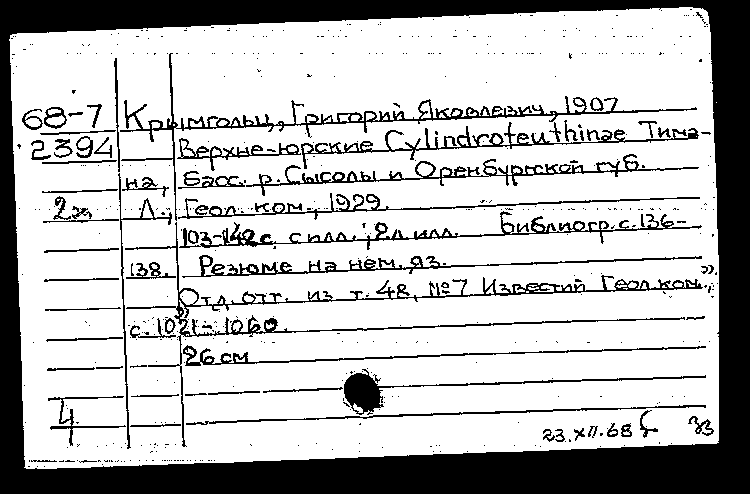 68-7 Крымгольц, Григорий Яковлевич, 1907
2394 Верхне-юрские Cylindroteuthinae Тима-
на, басс. р. Сысолы и Оренбургской губ.
Л., Геол. ком., 1929.
103-142 с. с илл.; 2 л. илл. Библиогр. с. 136-
138. Резюме на нем. яз.
Отд. отт. из т. 48, №7 Известий Геол. ком.,"
с. 1021-1060.
26 см
4
23.XII.68